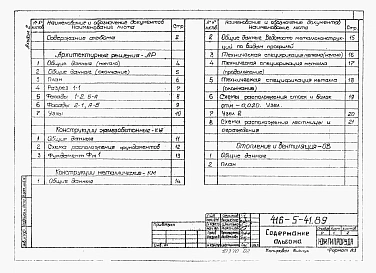 Наименование и обозначение документов
Наименование листа
Стр.
Содержание альбома 2
Архитектурные решения-АР
1 Общие данные (начало) 4
2 Общие данные (окончание) 5
3 План 6
4 Разрез 1-1 7
5 Фасады 1-2, Б-А 8
6 Фасады 2-1, А-Б 9
7 Узлы 10
Конструкции железобетонные-КЖ
1 Общие данные 11
2 Схема расположения фундаментов 12
3 Фундамент Фм1 13
Конструкции металлические-КМ
1 Общие данные 14
Наименование и обозначение документов
Наименование листа
Стр.
2 Общие данные Ведомость металлоконструк- 15
ций по видам профилей
3 Техническая спецификация металла (начало) 16
4 Техническая спецификация металла 17
(продолжение)
5 Техническая спецификация металла 18
(окончание)
6 Схемы расположения стоек и балок 19
отм. 0,020. Узел
7 Узел 20
8 Схема расположения лестницы и 21
ограждения
Отопление и вентиляция-ОВ
1 Общие данные
2 План
Привязан
416-5-41.89
Содержание
альбома
Копировал
Формат А3